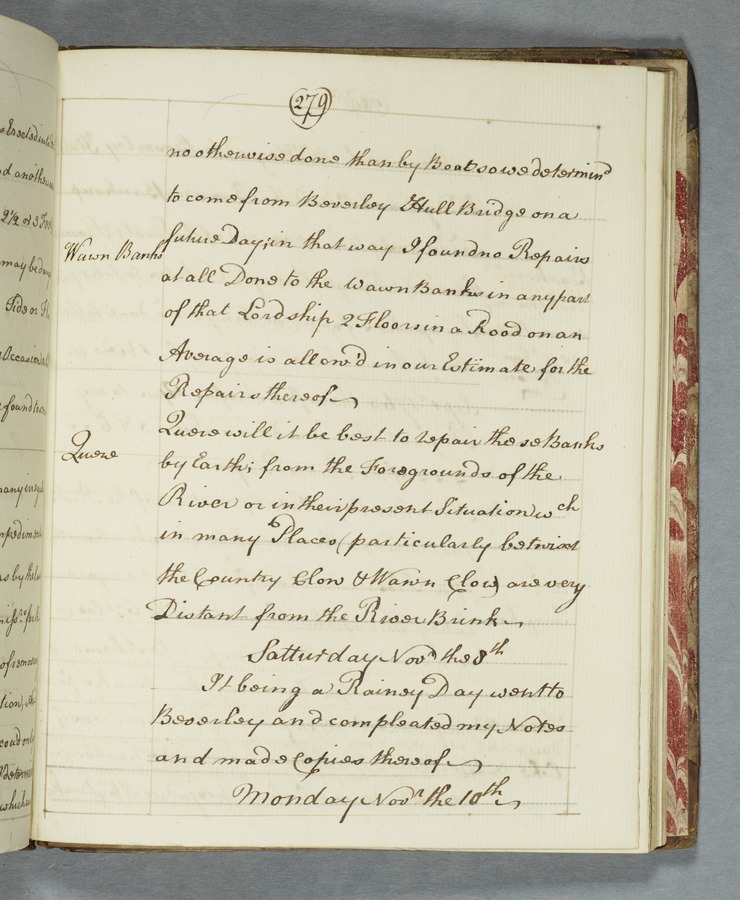 279
no otherwise done than by Boat so we determin'd
to come from Beverley & Hull Bridge on a
Wawn Banks
future Day; in that way I found no Repairs
at all Done to the Wawn Banks in any part
of that Lordship 2 Floors in a Rood on an
Average is allow'd in our Estimate for the
Repairs thereof
Quere
Quere will it be best to repair these Banks
by Earth; from the Foregrounds of the
River or in their present Situation wch
in many Places (particularly betwixt
the Country Clow & Wawn Clow) are very
Distant from the River Brink
Satturday Novr the 8th
It being a Rainey Day went to
Beverley and compleated my Notes
and made Copies thereof
Monday Novr the 10th